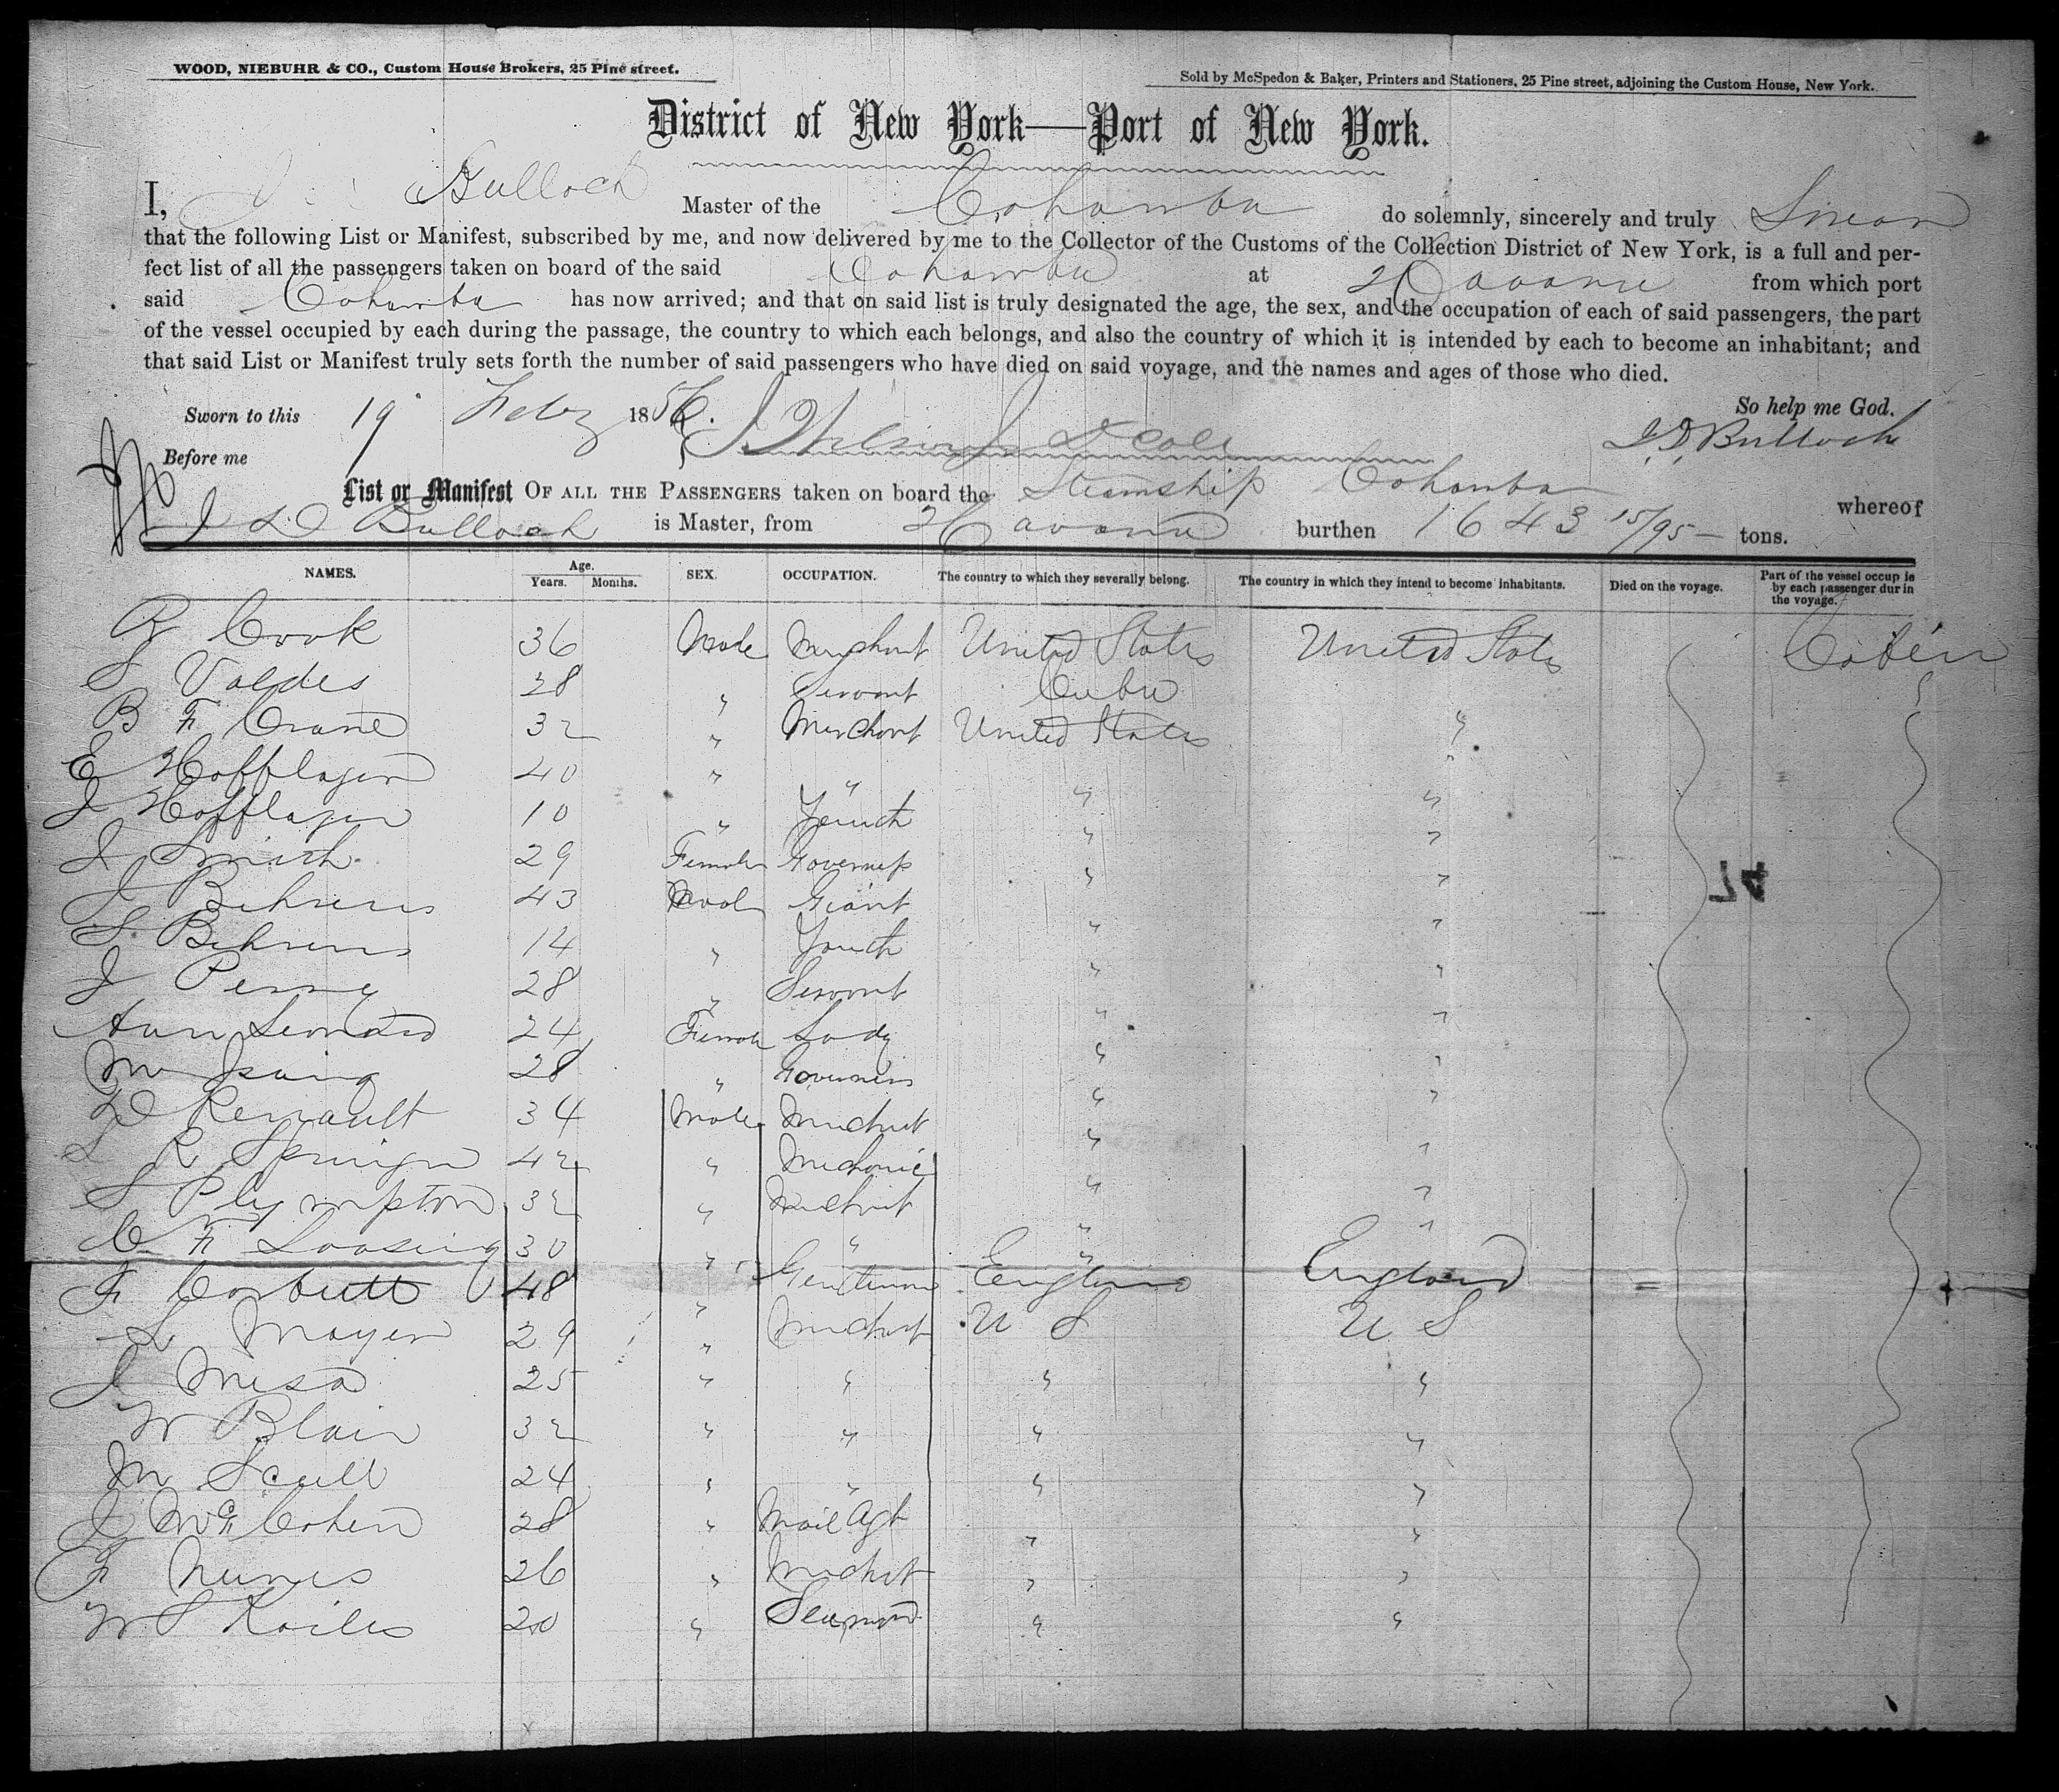 WOOD, NIEBUHR & CO., Custom House Brokers, 25 Pine street.
Sold by McSpedon & Baker, Printers and Stationers, 25 Pine street, adjoining the Custom House, New York.
District of New York—Port of New York.
I, Bulloch Master of the Cahawba do solemnly, sincerely and truly Swear
that the following List or Manifest, subscribed by me, and now delivered by me to the Collector of the Customs of the Collection District of New York, is a full and per-
fect list of all the passengers taken on board of the said Cahawba at Havana from which port
said Cahawba has now arrived; and that on said list is truly designated the age, the sex, and the occupation of each of said passengers, the part
of the vessel occupied by each during the passage, the country to which each belongs, and also the country of which it is intended by each to become an inhabitant; and
that said List or Manifest truly sets forth the number of said passengers who have died on said voyage, and the names and ages of those who died.
Sworn to this 19 Feby 1856. So help me God.
Before me J. D. Bulloch
List or Manifest OF ALL THE PASSENGERS taken on board the Steamship Cahawba whereof
J D Bulloch is Master, from Havana burthen 1643 15/95 tons.
NAMES. Age. Years. Months. SEX. OCCUPATION. The country to which they severally belong. The country in which they intend to become inhabitants. Died on the voyage. Part of the vessel occup ie by each passenger dur in the voyage.
Cook 36 Male Merchant United States United States Cabin
S Valdes 28 " Servant Cuba "
B F Crane 32 " Merchant United States "
E Hofflagen 40 " " " "
J Hofflagen 10 " Youth " "
J Smith 29 Female Governess " "
J Behrens 43 Male Giant " "
S Behrens 14 " Youth " "
J Perry 28 " Servant " "
Ann Leonard 24 Female Lady " "
M 28 " Governess " "
D Renault 34 Male Merchant " "
L R Springer 42 " Mechanic " "
S Plympton 32 " Merchant " "
C F 30 " " " "
F Corbett 48 " Gentleman England England
L Mayer 29 " Merchant U S U S
J Mesa 25 " " " "
W Blair 32 " " " "
M Scull 24 " " " "
J McF Cohen 28 " Mail Agt " "
F Nunes 26 " Merchant " "
W S 20 " " "